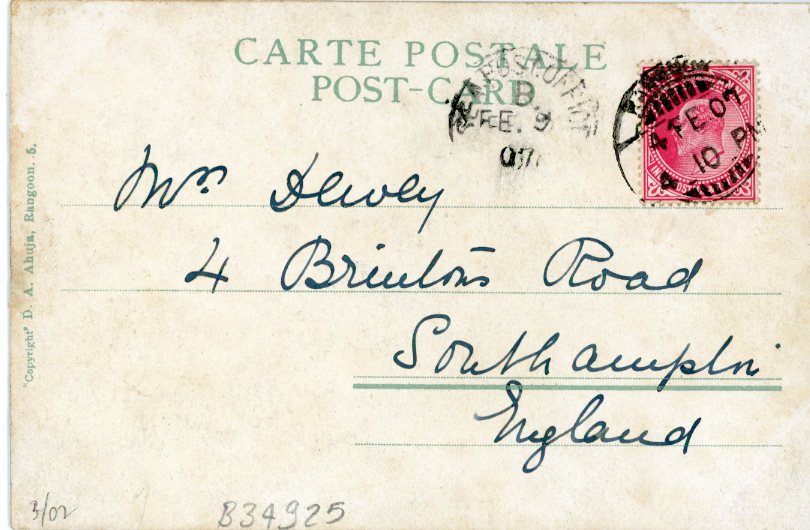 CARTE POSTALE
POST-CARD
SEA POST OFFICE
B.
FE. 9
07
4 FE 07
10 PM
Mrs Dewey
4 Brintons Road
Southampton
England
"Copyright" D. A. Ahuja, Rangoon. 5.
3/02
B34925